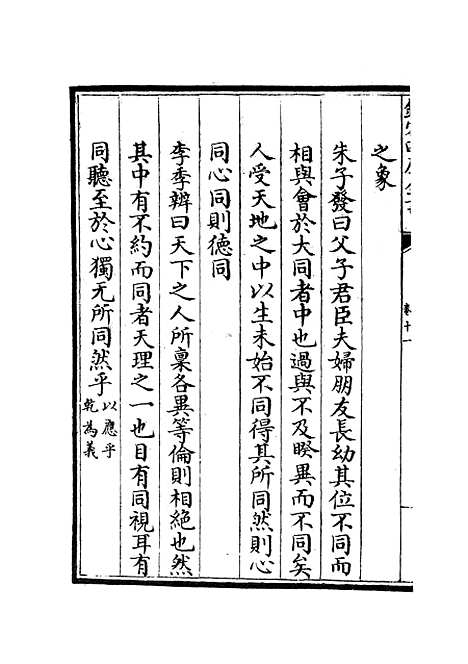 卷十一
之象
朱子發曰父子君臣夫婦朋友長幼其位不同而
相與會於大同者中也過與不及暌異而不同矣
人受天地之中以生未始不同得其所同然則心
同心同則德同
李季辨曰天下之人所稟各異等倫則相絶也然
其中有不約而同者天理之一也目有同視耳有
同聽至於心獨无所同然乎
以應乎
乾為義